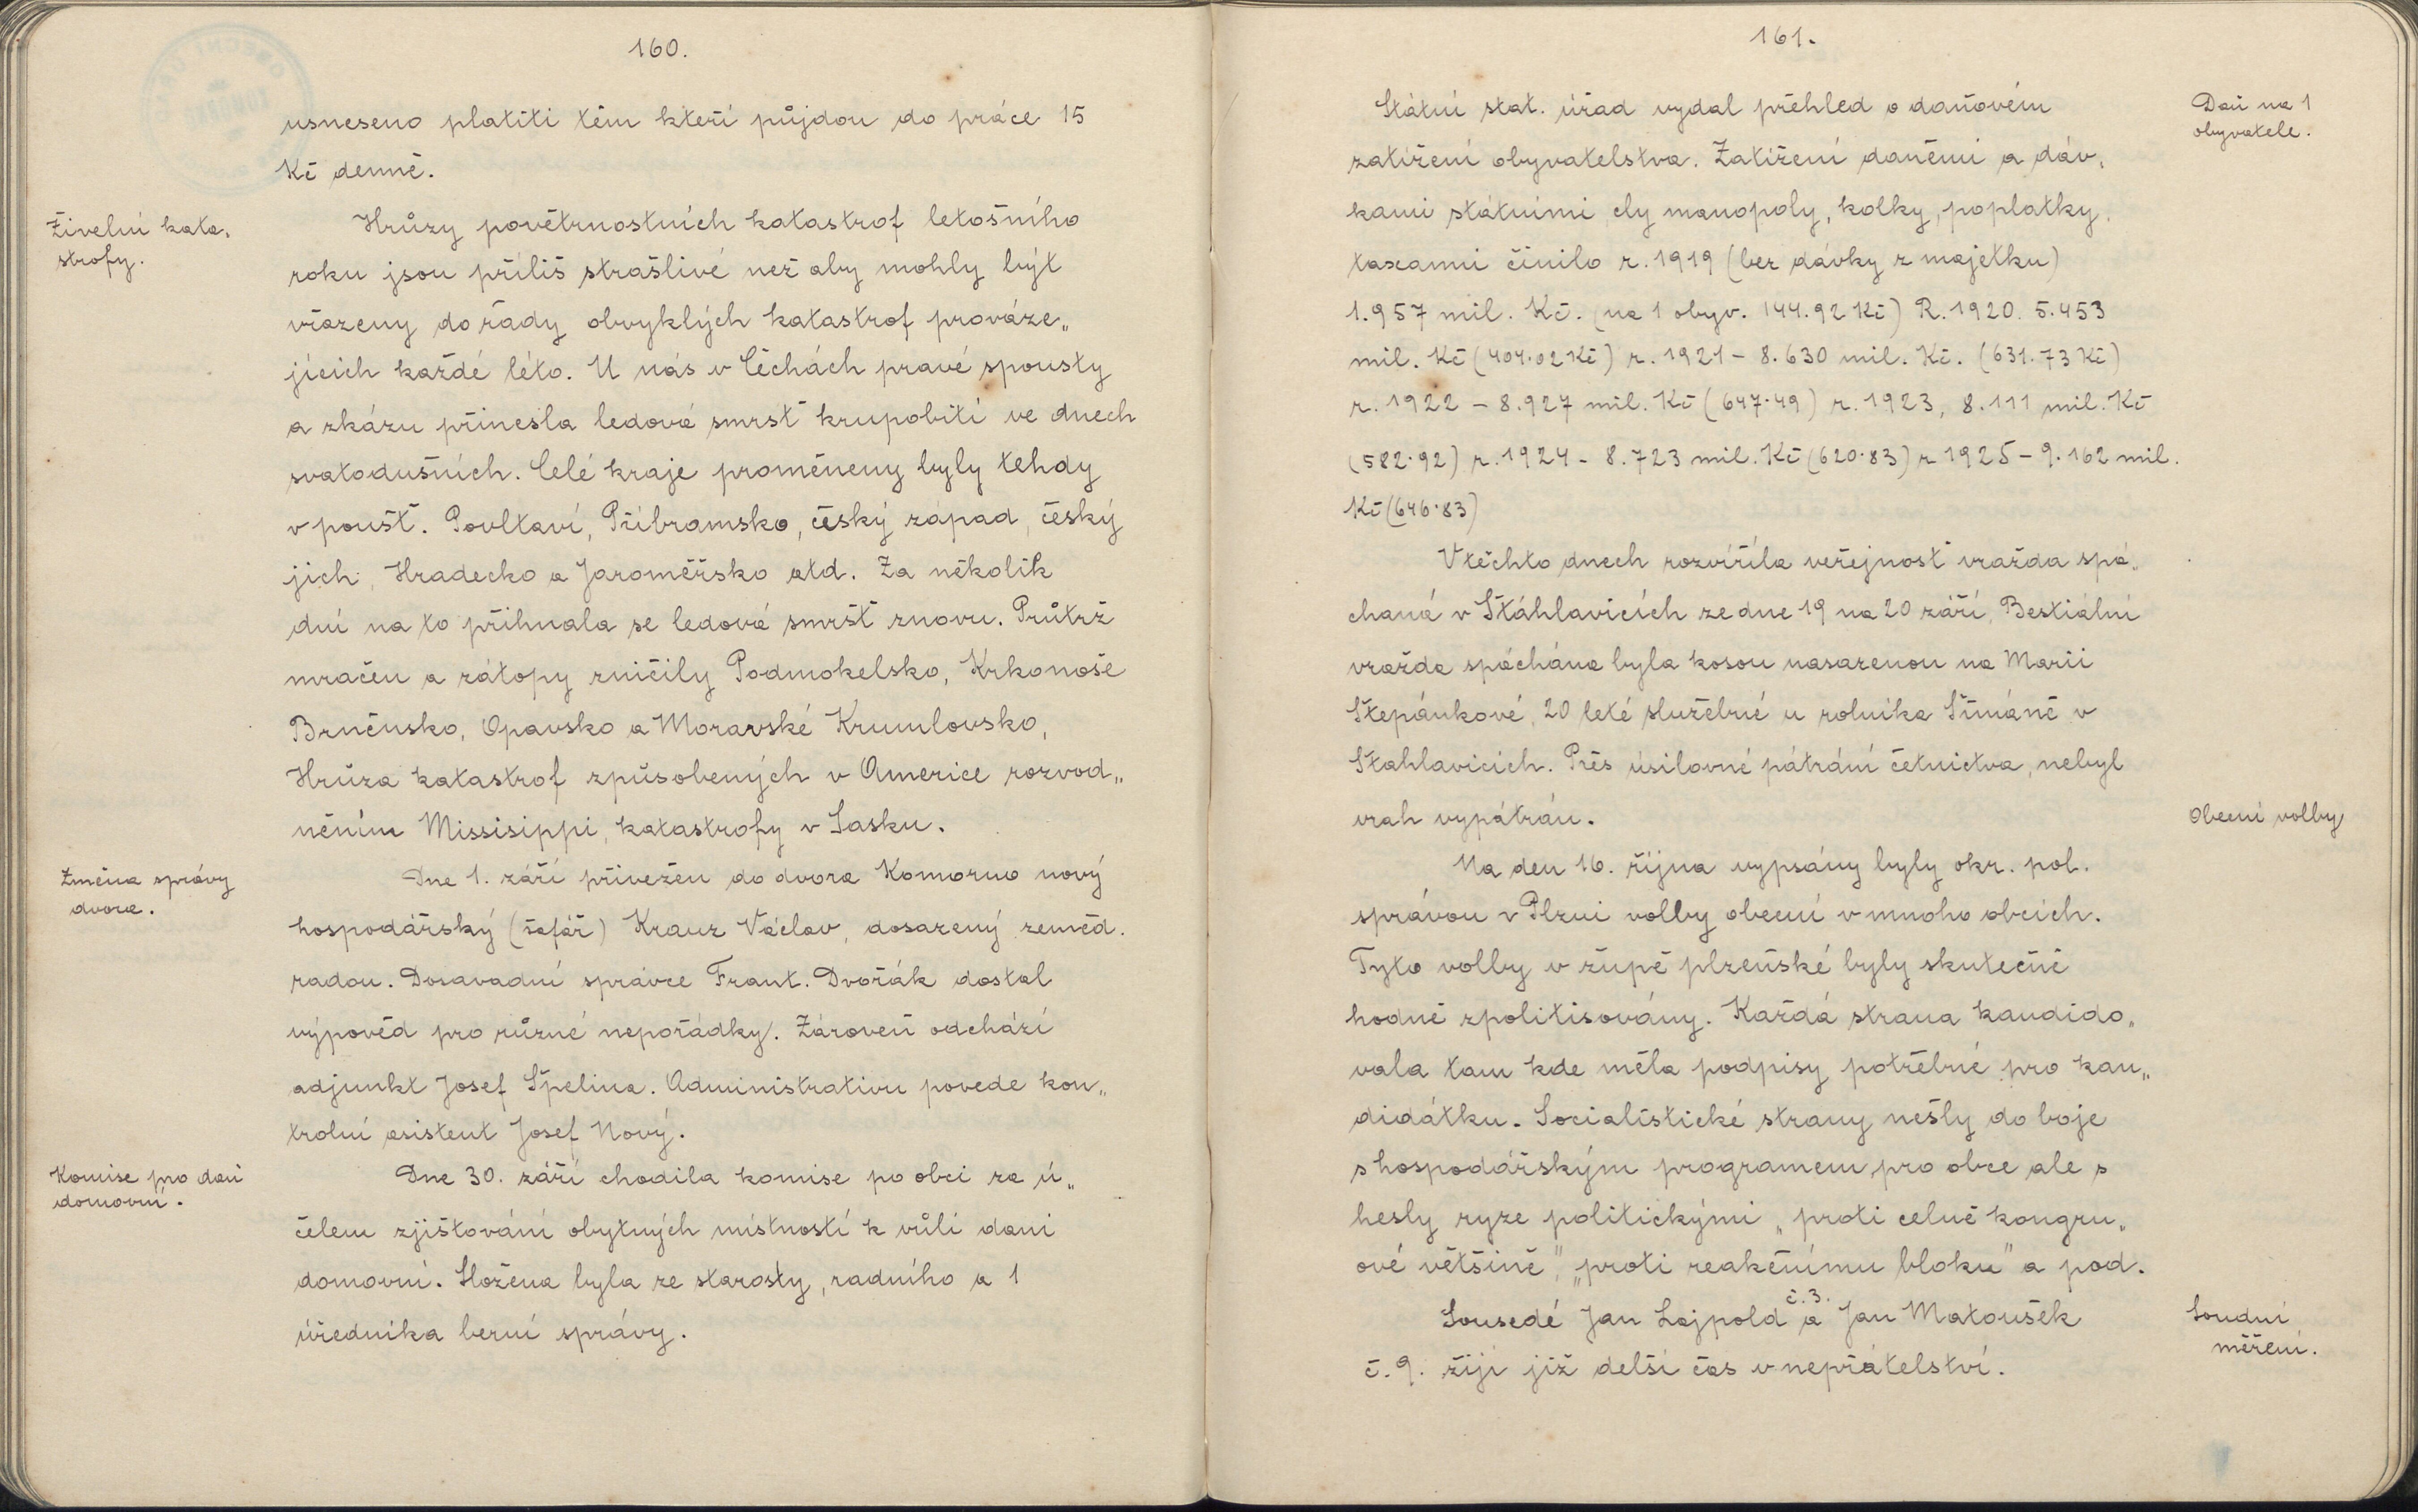 160.
usneseno platiti těm kteří půjdou do práce 15
Kč denně.
Živelní kata„
strofy.
Hrůzy povětrnostních katastrof letošního
roku jsou příliš strašlivé než aby mohly být
vřazeny do řady obvyklých katastrof prováze„
jících každé léto. U nás v Čechách pravé spousty
a zkázu přinesla ledová smršť krupobití ve dnech
svatodušních. Celé kraje proměneny byly tehdy
v poušť. Povltaví, Příbramsko, český západ, český
jich, Hradecko a Jaroměřsko atd. Za několik
dní na to přihnala se ledová smršť znovu. Průtrž
mračen a zátopy zničily Podmokelsko, Krkonoše
Brněnsko, Opavsko a Moravské Krumlovsko,
Hrůza katastrof způsobených v Americe rozvod„
něním Missisippi, katastrofy v Sasku.
Změna správy
dvora.
Dne 1. září přivežen do dvora Komorno nový
hospodářský (šafář) Krauz Václav, dosazený zeměd.
radou. Dosavadní správce Frant. Dvořák dostal
výpověd pro různé nepořádky. Zároveň odchází
adjunkt Josef Špelina. Administrativu povede kon„
trolní asistent Josef Nový.
Komise pro daň
domovní.
Dne 30. září chodila komise po obci za ú„
čelem zjišťování obytných místností k vůli dani
domovní. Složena byla ze starosty, radního a 1
úředníka berní správy.
161.
Daň na 1
obyvatele.
Státní stat. úřad vydal přehled o daňovém
zatížení obyvatelstva. Zatížení daněmi a dáv„
kami státními cly monopoly, kolky, poplatky,
taxami činilo r. 1919 (bez dávky z majetku)
1.957 mil. Kč. (na 1 obyv. 144.92 Kč) R. 1920. 5.453
mil. Kč (404.02 Kč) r. 1921 – 8.630 mil. Kč. (631.73 Kč)
r. 1922 – 8.927 mil. Kč (647.49) r. 1923, 8.111 mil. Kč
(582.92) r. 1924 – 8.723 mil. Kč (620.83) r 1925 – 9.162 mil.
Kč (646.83)
V těchto dnech rozvířila veřejnost vražda spá„
chaná v Štáhlavicích ze dne 19 na 20 září, Bestiální
vražda spáchána byla kosou nasazenou na Marii
Štepánkové, 20 leté služebné u rolníka Šimáně v
Štahlavicích. Přes úsilovné pátrání četnictva, nebyl
vrah vypátrán.
Obecní volby
Na den 16. října vypsány byly okr. pol.
správou v Plzni volby obecní v mnoho obcích.
Tyto volby v župě plzeňské byly skutečně
hodně zpolitisovány. Každá strana kandido„
vala tam kde měla podpisy potřebné pro kan„
didátku. Socialistické strany nešly do boje
s hospodářským programem pro obce ale s
hesly ryze politickými „proti celně kongru„
ové většině", „proti reakčnímu bloku" a pod.
Soudní
měření.
Sousedé Jan Lajpold č. 3. a Jan Matoušek
č. 9. žijí již delší čas v nepřátelství.